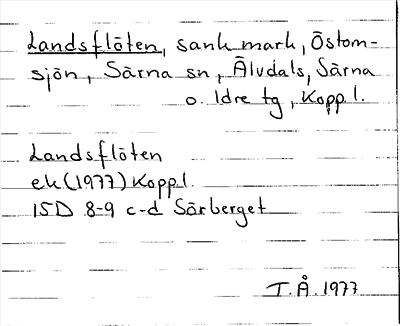 Landsflöten, sank mark, Östom-
sjön, Särna sn, Älvdals, Särna
o. Idre tg, Koppl.
Landsflöten
ek (1977) Koppl.
15D 8-9 c-d Sörberget
T.Å. 1977